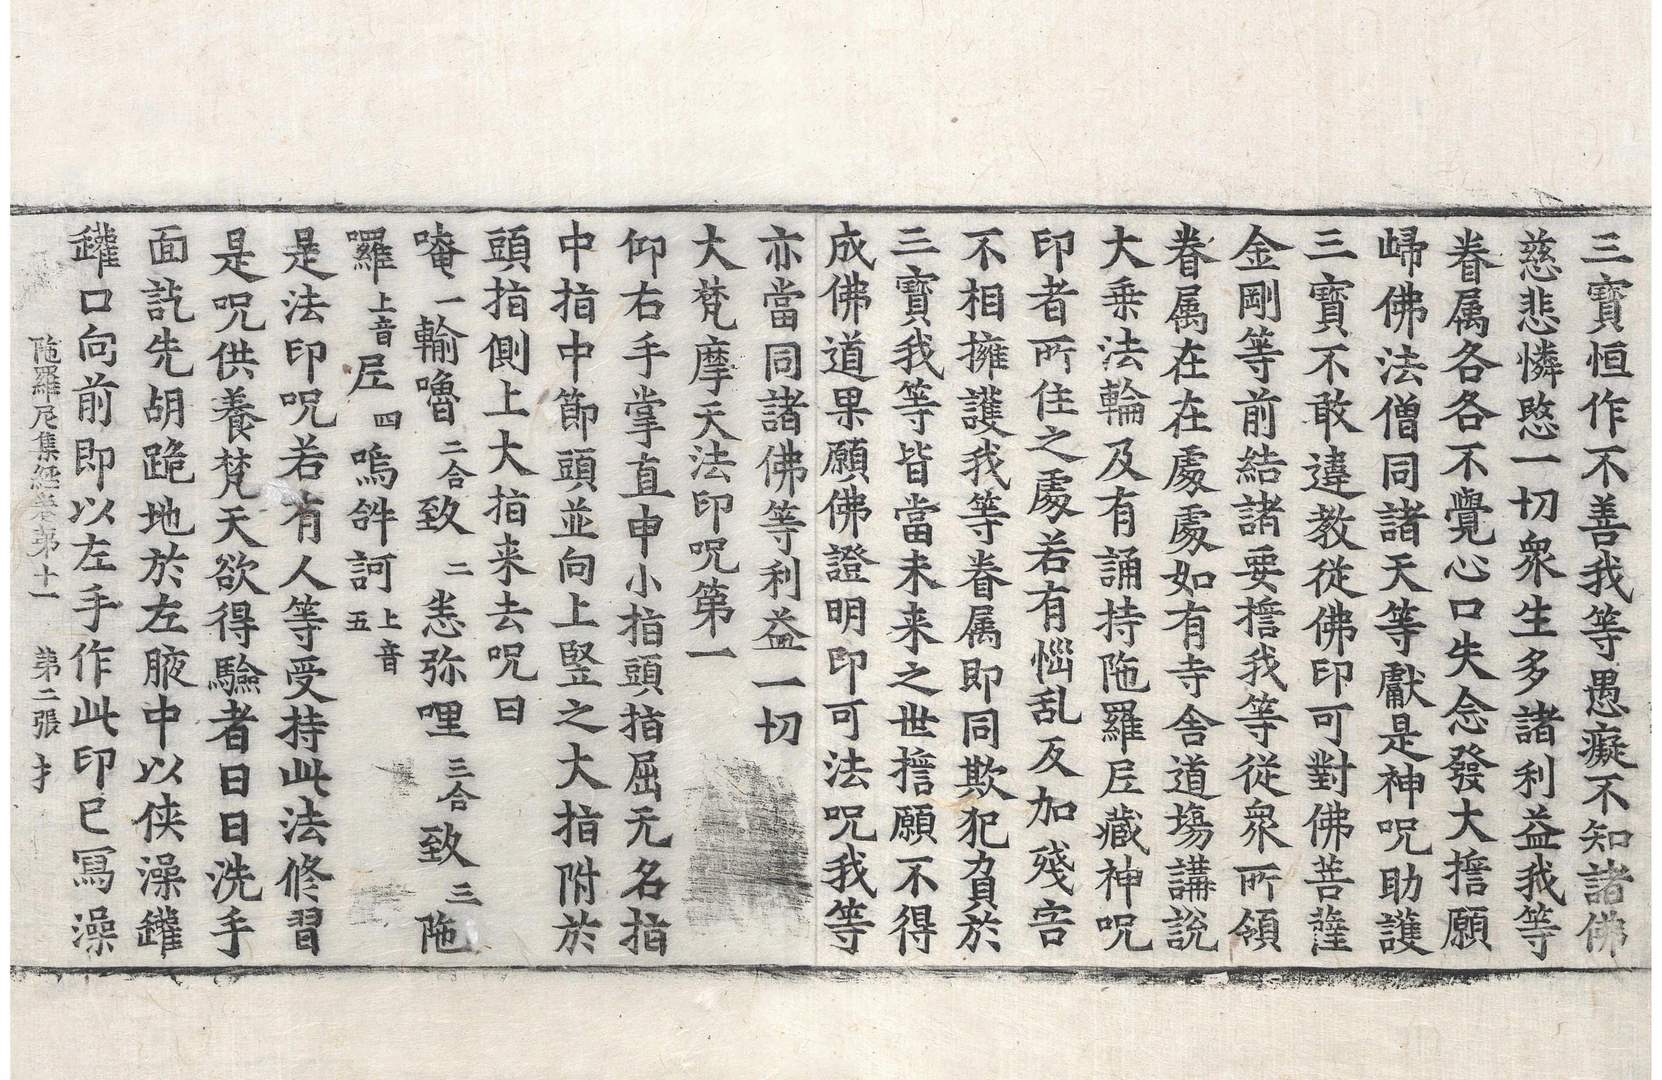 三寶恒作不善我等愚癡不知諸佛
慈悲憐愍一切衆生多諸利益我等
眷属各各不覺心口失念發大擔願
歸佛法僧同諸天等獻是神呪助護
三寶不敢違教從佛印可對佛菩薩
金剛等前結諸要擔我等從衆所領
眷属在在處處如有寺舍道塲講說
大乗法輪及有誦持陁羅𡰱藏神呪
印者所住之處若有惱乱反加殘害
不相擁護我等眷属即同欺犯負於
三寶我等皆當未来之世擔願不得
成佛道果願佛證明印可法呪我等
亦當同諸佛等利益一切
大梵摩天法印呪第一
仰右手掌直申小指頭屈无名指
中指中節頭並向上竪之大指附於
頭指側上大指来去呪曰
唵一輸嚕二合致二恙弥哩三合致三陁
羅上音𡰱四嗚𤙖訶上音五
是法印呪若有人等受持此法修習
是呪供養梵天欲得驗者日日洗手
面訖先胡跪地於左腋中以侠澡鑵
鑵口向前即以左手作此印已冩澡
陁羅尼集經卷第十一 第二張 才